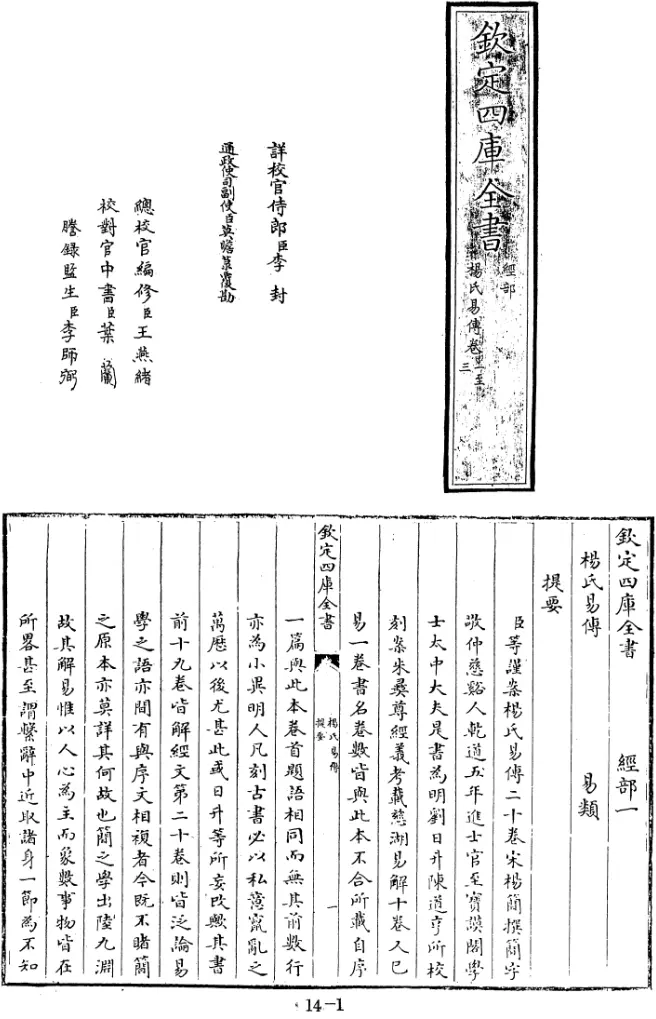 欽定四庫全書
經部
楊氏易傳卷一至
三
詳校官侍郎臣李封
通政使司副使臣莫瞻菉覆勘
總校官編修臣王燕緒
校對官中書臣葉蘭
謄錄監生臣李師弼
欽定四庫全書 經部一
楊氏易傳 易類
提要
臣等謹案楊氏易傳二十卷宋楊簡撰簡字
敬仲慈谿人乾道五年進士官至寶謨閣學
士太中大夫是書為明劉日升陳道亨所校
刻案朱彞尊經義考載慈湖易解十卷又已
易一卷書名卷數皆與此本不合所載自序
欽定四庫全書
楊氏易傳
提要
一
一篇與此本卷首題語相同而無其前數行
亦為小異明人凡刻古書必以私意竄亂之
萬厯以後尤甚此或日升等所妄改歟其書
前十九卷皆解經文第二十卷則皆泛論易
學之語亦間有與序文相複者今既不睹簡
之原本亦莫詳其何故也簡之學出陸九淵
故其解易惟以人心為主而象數事物皆在
所畧甚至謂繫辭中近取諸身一節為不知
14-1